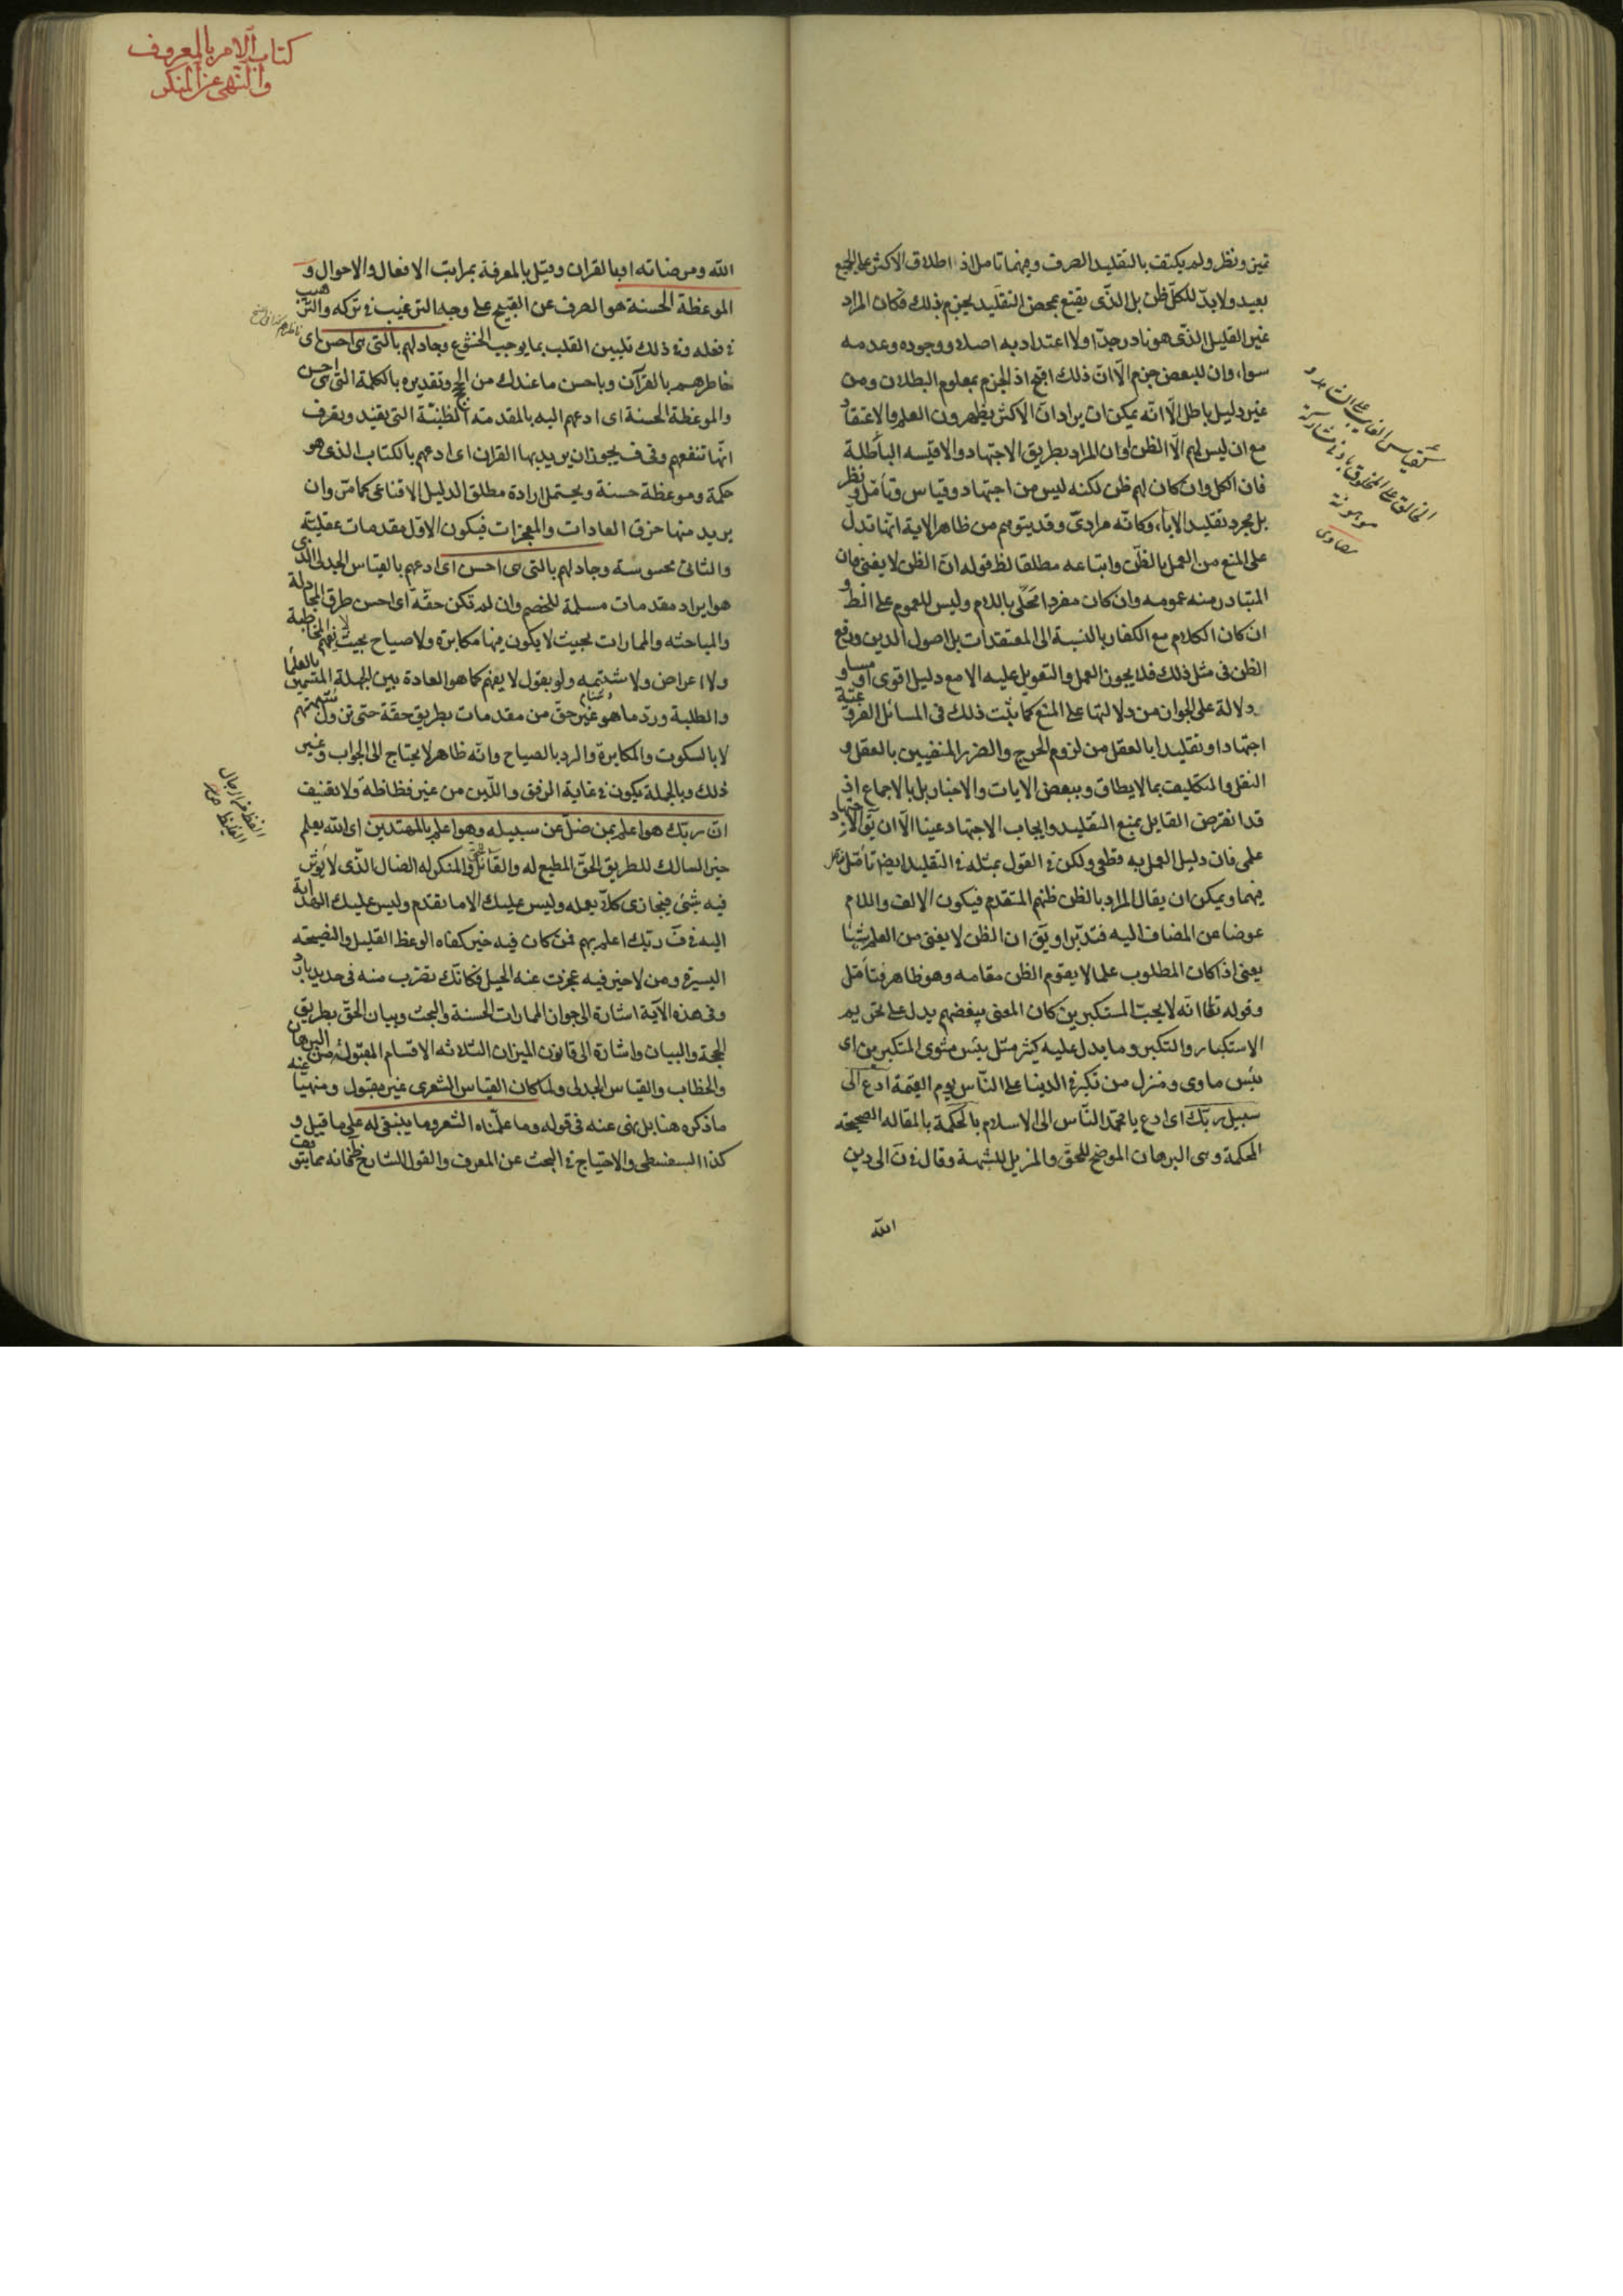 تميز ونظر ولم يكتف بالتقليد الصرف وفيهما تامل اذ اطلاق الاكثر على الجميع
بعيد ولا بدّ للكلّ ظن بل الذّى يقنع بمحض التقليد يجزم بذلك فكان المراد
غير القليل الذّى هو نادر جدّا ولا اعتداد به اصلا ووجوده وعدمه
سواء وان للبعض جزم الّا انّ ذلك اقبح اذ الجزم بمعلوم البطلان ومن
غير دليل باطل الّا انّه يمكن ان يراد انّ الاكثر يظهرون العلم والاعتقاد
مع ان ليس لهم الّا الظن او ان المراد بطريق الاجتهاد والاقيسه الباطلة
فان الكل وان كان لهم ظن لكنه ليس من اجتهاد وقياس وتأمّل ونظر
بل مجرد تقليد الاباء وكانّه مرادىّ وقد يتوهم من ظاهر الاية انّها تدلّ
على المنع من العمل بالظنّ واتباعه مطلقا لظ قوله انّ الظن لا يغنى فان
المتبادر منه عمومه وان كان مفردا محلّى باللام وليس للعموم على الظ و
ان كان الكلام مع الكفار بالنسبة الى المعتقدات بل اصول الدين ورفع
الظن فى مثل ذلك فلا يجوز العمل والتعويل عليه الا مع دليل اقوى او مساو
دلالة على الجواز من دلالتها على المنع كما يثبت ذلك فى المسائل الفرو عيّة
اجتهادا وتقليدا بالعقل من لزوم الحرج والضرر المنفيين بالعقل و
النقل والتكليف بما لا يطاق وببعض الايات والاخبار بل بالاجماع اذ
قد انقرض القايل بمنع التقليد وايجاب الاجتهاد عينا الّا ان يق الاجتهاد
علمى فان دليل العمل به قطعى ولكن فى القول بمثله فى التقليد ايضا تأمّل
فيهما ويمكن ان يقال المراد بالظن ظنهم المتقدم فيكون الالف واللام
عوضا عن المضاف اليه فتدبّر او يق ان الظن لا يغنى من العلم شيئا
يعنى اذا كان المطلوب علما لا يقوم الظن مقامه وهو ظاهر فتأمّل
وقوله تعا انّه لا يحبّ المستكبرين كان المعنى يبغضهم يدل على تحريم
الاستكبار والتكبر وما يدل عليه كثير مثل بئس مثوى المتكبرين اى
بئس ماوى ومنزل من تكبر فى الدنيا على النّاس يوم القيمة ادع الى
سبيل ربّك اى ادع يا محمّد النّاس الى الاسلام بالحكمة بالمقاله الصحيحة
المحكمة وهى البرهان الموضح للحقّ والمزيل للشبهة وقال فى ن الى دين
الله
كقياس الغايب على الشاهد و
الخالق على المخلوق بادنى مشاركة
موهومة
بيضاوى
كتاب الامر بالمعروف
والنّهى عن المنكر
الله ومرضاته ا ى بالقران وقيل بالمعرفة بمراتب الافعال والاحوال و
الموعظة الحسنة هو الصرف عن القبيح على وجه الترغيب فى تركه والترهيب
فى فعله وفى ذلك تليين القلب بما يوجب الخشوع وجادلهم بالتى هى احسن اى
خاطرهم بالقرآن وباحسن ما عندك من الحجج وتقديره بالكلمة التى هى احسن
والموعظة الحسنة اى ادعهم اليه بالمقدمة الظنيّة التى يفيد ويعرف
انّها تنفعهم وفى ف يجوز ان يريد بها القران اى ادعهم بالكتاب الذى هو
حكمة وموعظة حسنة ويحتمل ارادة مطلق الدليل الاقناعى كما مرّ وان
يريد منها خرق العادات والمعجزات فيكون الاول مقدمات عقلية
والثانى محسوسة وجادلهم بالتى هى احسن اى ادعهم بالقياس الجدلى الذى
هو ايراد مقدمات مسلمة للخصم وان لم تكن حقّة اى احسن طرق المجادلة
والمباحثه والممارات بحيث لا يكون فيها مكابرة ولا صياح بحيث لا يفهم المخاطبة
ولا اعراض ولا شتيمه ولو بقول لا يفهم كما هو العادة بين الجهلة المتسمين بالعلماء
والطلبة وردّ ما هو غير حق من مقدمات بطريق حقّة حتى تزول شبهتهم
لا بالسكوت والمكابرة والرد بالصياح وانّه ظاهر لا يحتاج الى الجواب وغير
ذلك وبالجملة يكون فى غاية الرفق واللّين من غير فظاظة ولا تعنيف
انّ ربّك هو اعلم بمن ضلّ عن سبيله وهو اعلم بالمهتدين اى الله يعلم
حين السالك للطريق الحقّ المطيع له والقائل والمنكر له الضال الذّى لا يؤثر
فيه شئ فيجازى كلّا بعمله وليس عليك الا ما تقدم وليس عليك الهداية
اليه فى ف ربّك اعلم بهم فمن كان فيه خير كفاه الوعظ القليل والنصيحة
اليسيرة ومن لا خير فيه عجزت عنه الحيل فكانّك تضرب منه فى حديد بارد
وفى هذه الآية اشارة الى جواز الممارات الحسنة والبحث وبيان الحقّ بطريق
الحجة والبيان واشارة الى قانون الميزان الثلاثه الاقسام المقبولة من البرهان
والخطاب والقياس الجدلى ولمّا كان القياس الشعرى غير مقبول ومنهيّا عنه
ما ذكره هنا بل نهى عنه فى قوله وما علّمناه الشعر وما ينبغى له على ما قيل و
كذا السفسطى والاحتياج فى البحث عن المعرف والقول الشارح ظ فانه مما يتوقف
الفظ من الرجال
الغليظ